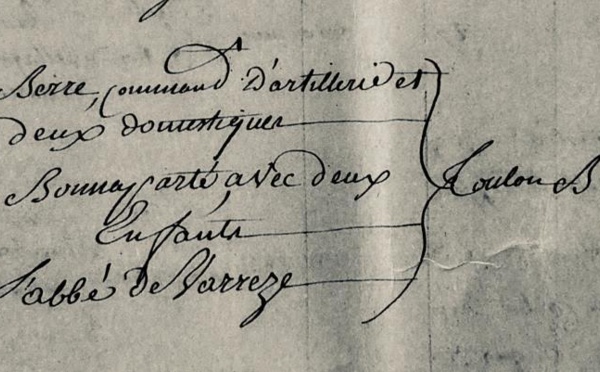 Berre, command d'artillerie et
deux domestiques
Bonnaparté, avec deux
Enfants
l'abbé de Varreze
Toulon B